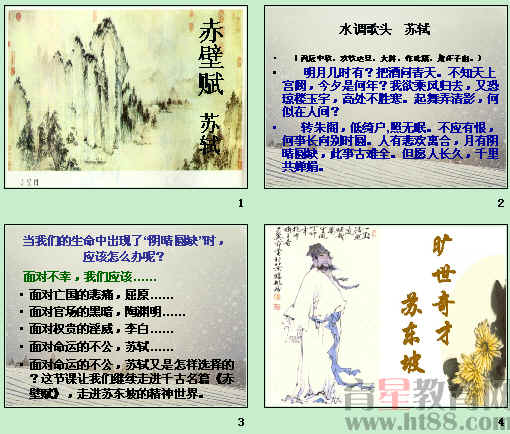 赤壁赋
苏轼
1
水调歌头 苏轼
(丙辰中秋，欢饮达旦，大醉，作此篇，兼怀子由。)
明月几时有？把酒问青天。不知天上
宫阙，今夕是何年？我欲乘风归去，又恐
琼楼玉宇，高处不胜寒。起舞弄清影，何
似在人间？
转朱阁，低绮户,照无眠。不应有恨，
何事长向别时圆。人有悲欢离合，月有阴
晴圆缺，此事古难全。但愿人长久，千里
共婵娟。
2
当我们的生命中出现了“阴晴圆缺”时，
应该怎么办呢？
面对不幸，我们应该……
• 面对亡国的悲痛，屈原……
• 面对官场的黑暗，陶渊明……
• 面对权贵的淫威，李白……
• 面对命运的不公，苏轼……
• 面对命运的不公，苏轼又是怎样选择的
？这节课让我们继续走进千古名篇《赤
壁赋》，走进苏东坡的精神世界。
3
旷世奇才
苏东坡
育星教育网
www.ht88.com
4